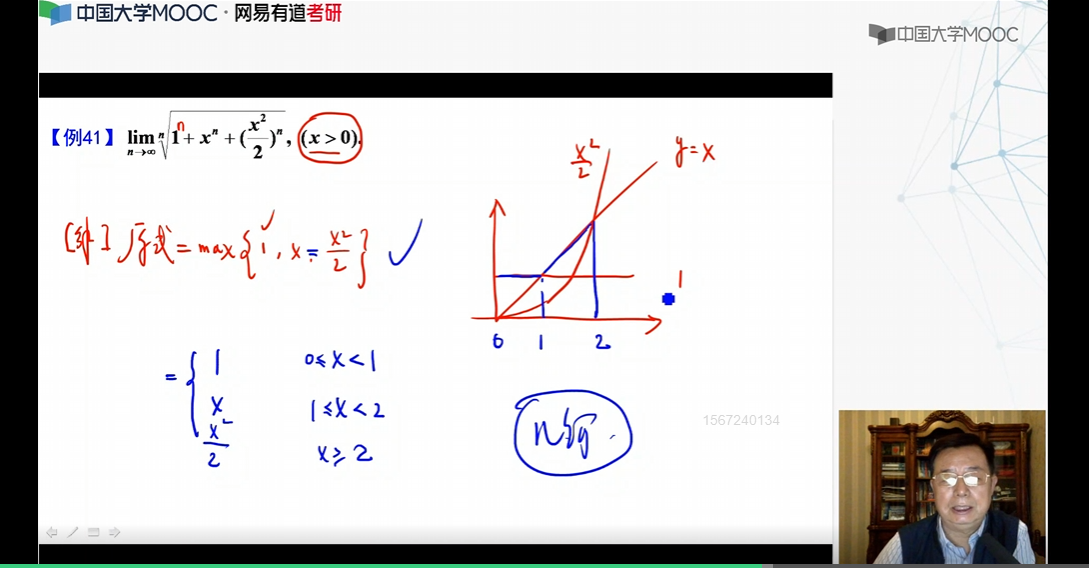 中国大学MOOC · 网易有道考研
中国大学MOOC
【例41】 lim n→∞ ⁿ√1ⁿ + xⁿ + (x²/2)ⁿ, (x > 0).
x²/2
y = x
[解] 原式 = max { 1, x, x²/2 }
1
0 1 2
= { 1 0 ≤ x < 1
x 1 ≤ x < 2
x²/2 x ≥ 2
1567240134